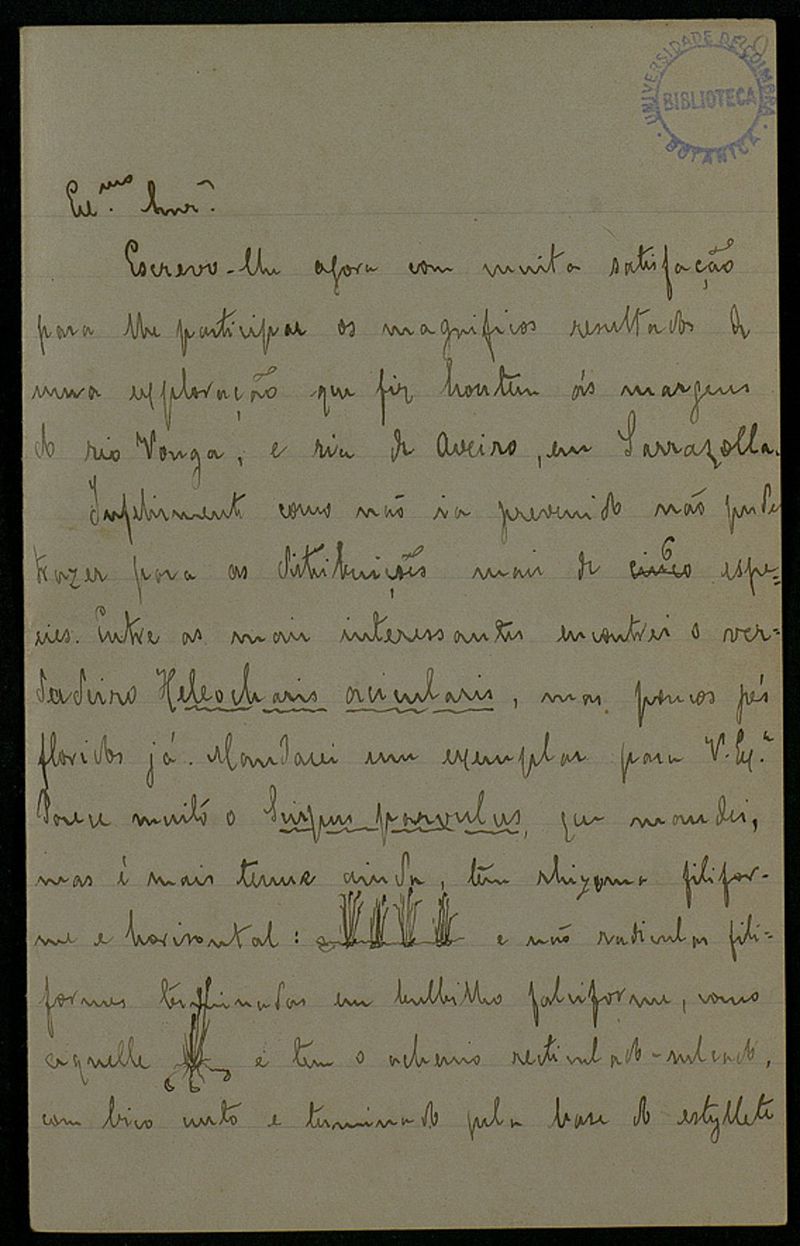 UNIVERSIDADE DE COIMBRA
BIBLIOTECA
BOTANICA
Ex.mo Snr.
Escrevo-lhe agora com muita satisfação
para lhe participar os magnificos resultados de
uma exploração que fiz hontem ás margens
do rio Vouga, e ria de Aveiro, em Sarrazolla.
Infelizmente como não ia prevenido não pude
trazer para as distribuições mais de cinco 6 espe-
cies. Entre as mais interessantes encontrei o ver-
dadeiro Heleocharis acicularis, mas poucos pés
floridos já. Mandarei um exemplar para V. Ex.a
Parece muito o Scirpus parvulus, que mandei,
mas é mais tenue ainda, tem rhizoma filifor-
me e horisontal: e não radiculas fili-
formes terminadas em bulbilho falciforme, como
aquelle e tem o achenio reticulado-sulcado,
com bico curto e terminado pela base do estyllete